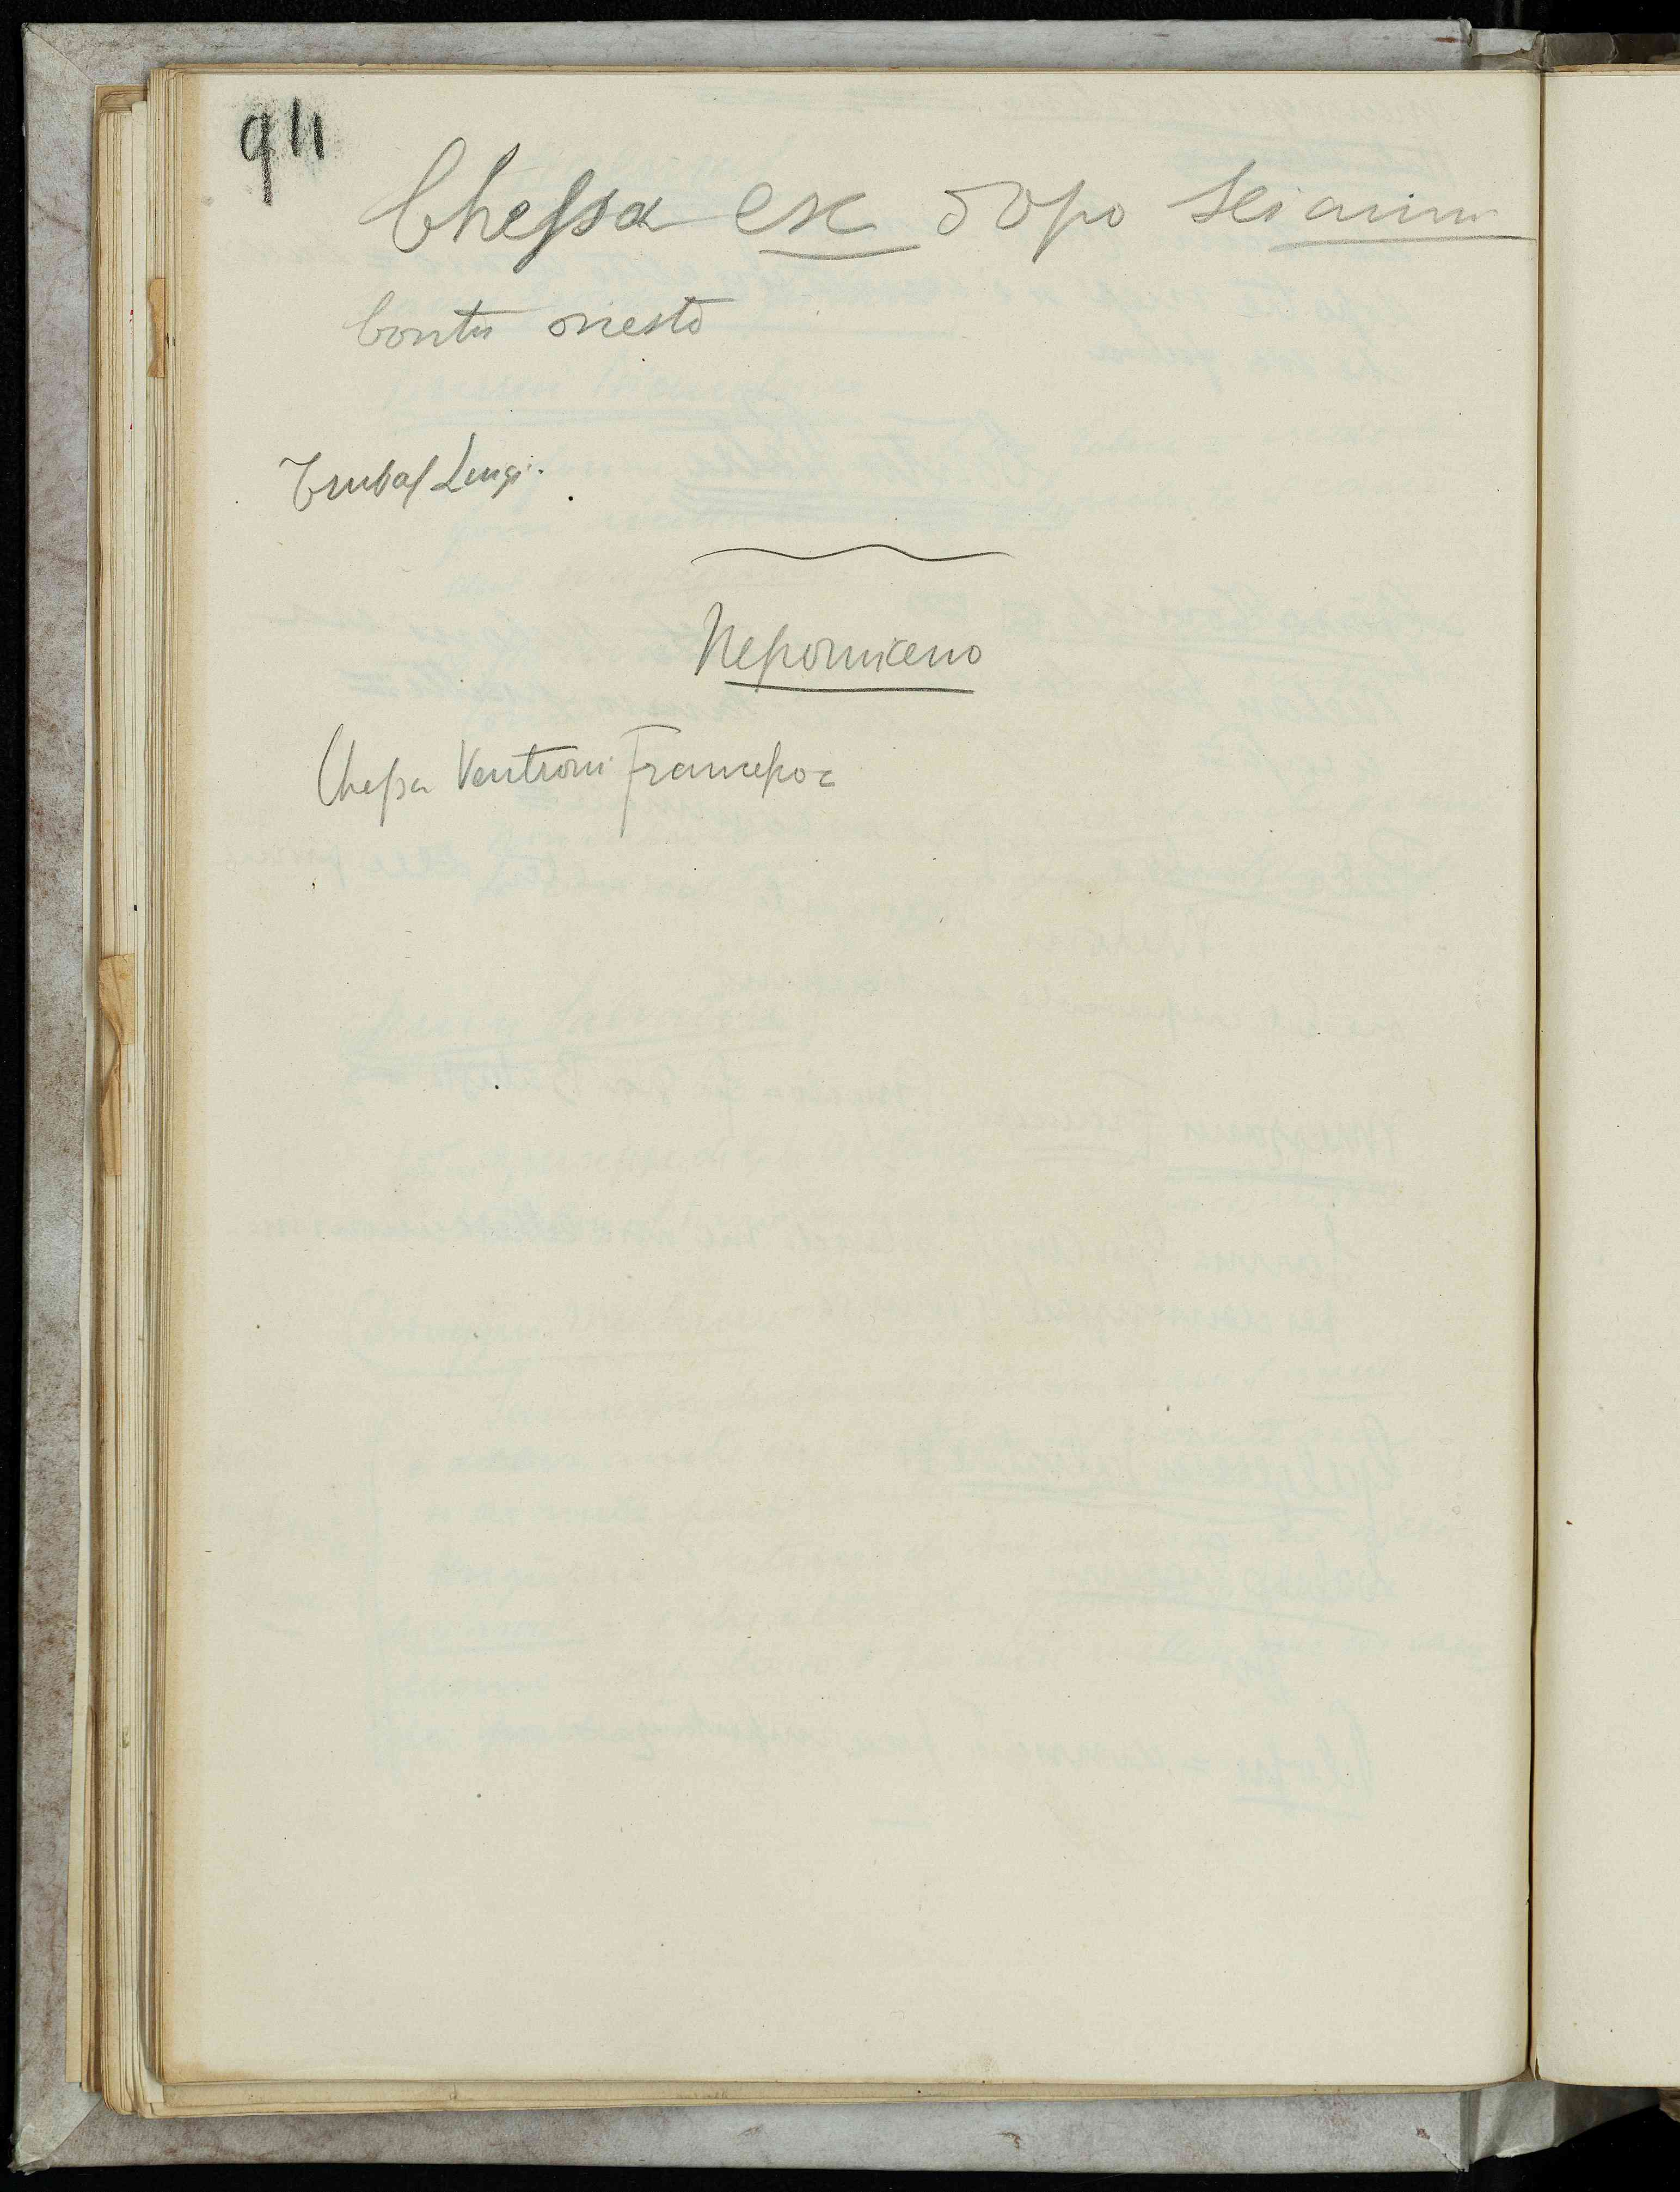 911
Chessa ex dopo sei anni
Contu onesto
Luigi
Nepomiceno
Chessa Ventroni Francesco =